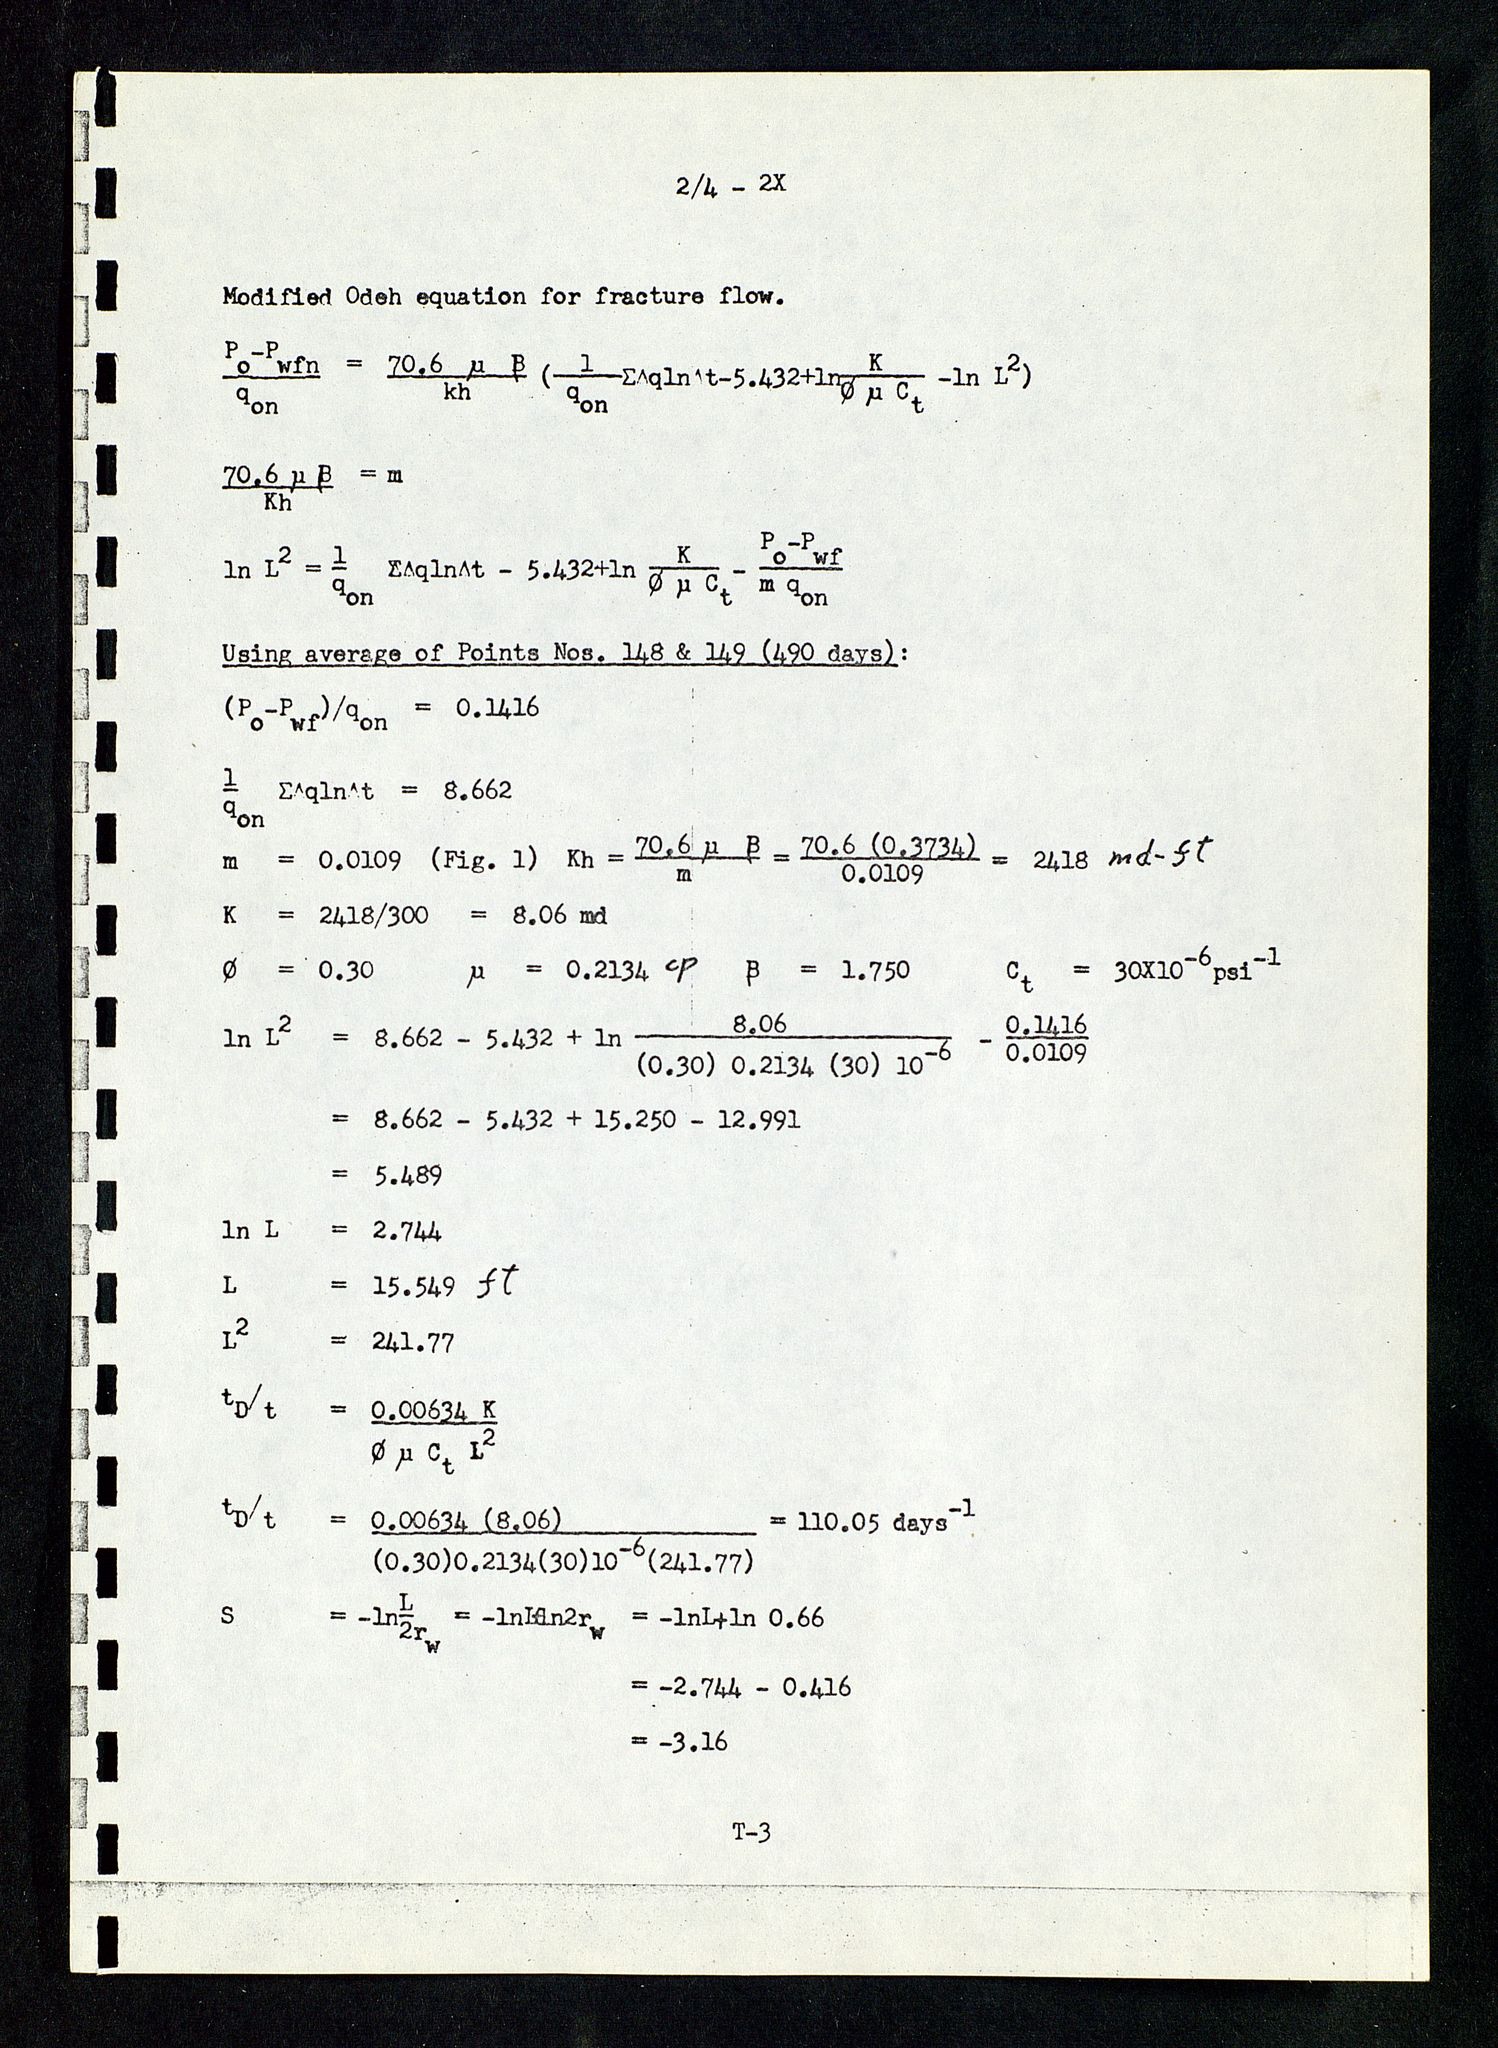 2/4 - 2X
Modified Odeh equation for fracture flow.
Po-Pwfn / qon = 70.6 µ β / kh ( 1/qon Σ^qln^t-5.432+ln K / Ø µ Ct -ln L²)
70.6 µ β / Kh = m
ln L² = 1/qon Σ^qln^t - 5.432+ln K / Ø µ Ct - Po-Pwf / m qon
Using average of Points Nos. 148 & 149 (490 days):
(Po-Pwf)/qon = 0.1416
1/qon Σ^qln^t = 8.662
m = 0.0109 (Fig. 1) Kh = 70.6 µ β / m = 70.6 (0.3734) / 0.0109 = 2418 md-ft
K = 2418/300 = 8.06 md
Ø = 0.30 µ = 0.2134 cp β = 1.750 Ct = 30X10⁻⁶psi⁻¹
ln L² = 8.662 - 5.432 + ln 8.06 / (0.30) 0.2134 (30) 10⁻⁶ - 0.1416 / 0.0109
= 8.662 - 5.432 + 15.250 - 12.991
= 5.489
ln L = 2.744
L = 15.549 ft
L² = 241.77
tD/t = 0.00634 K / Ø µ Ct L²
tD/t = 0.00634 (8.06) / (0.30)0.2134(30)10⁻⁶(241.77) = 110.05 days⁻¹
S = -ln L/2rw = -lnL+ln2rw = -lnL+ln 0.66
= -2.744 - 0.416
= -3.16
T-3